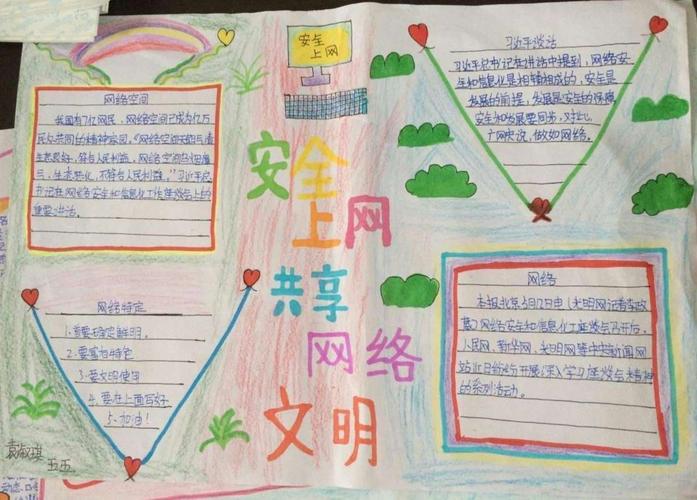 安全
上网
安全
上网
共享
网络
文明
网络空间
我国有7亿网民，网络空间已成为亿万
民众共同的精神家园。"网络空间天朗气清
生态良好，符合人民利益，网络空间乌烟瘴
气、生态恶化，不符合人民利益。"习近平总
书记在网络安全和信息化工作座谈会上的
重要讲话。
网络特定
1.
2.要
3.要文明使用
4.要在上面写好
5.加油！
习近平谈话
习近平总书记在讲话中提到，网络安
全和信息化是相辅相成的，安全是
发展的前提，发展是安全的保障，
安全和发展要同步，对此，
广网
网络
本报北京
网络安全和信息化工座谈会召开后，
人民网、新华网、光明网等中央新闻网
站
的系列活动。
袁
五五